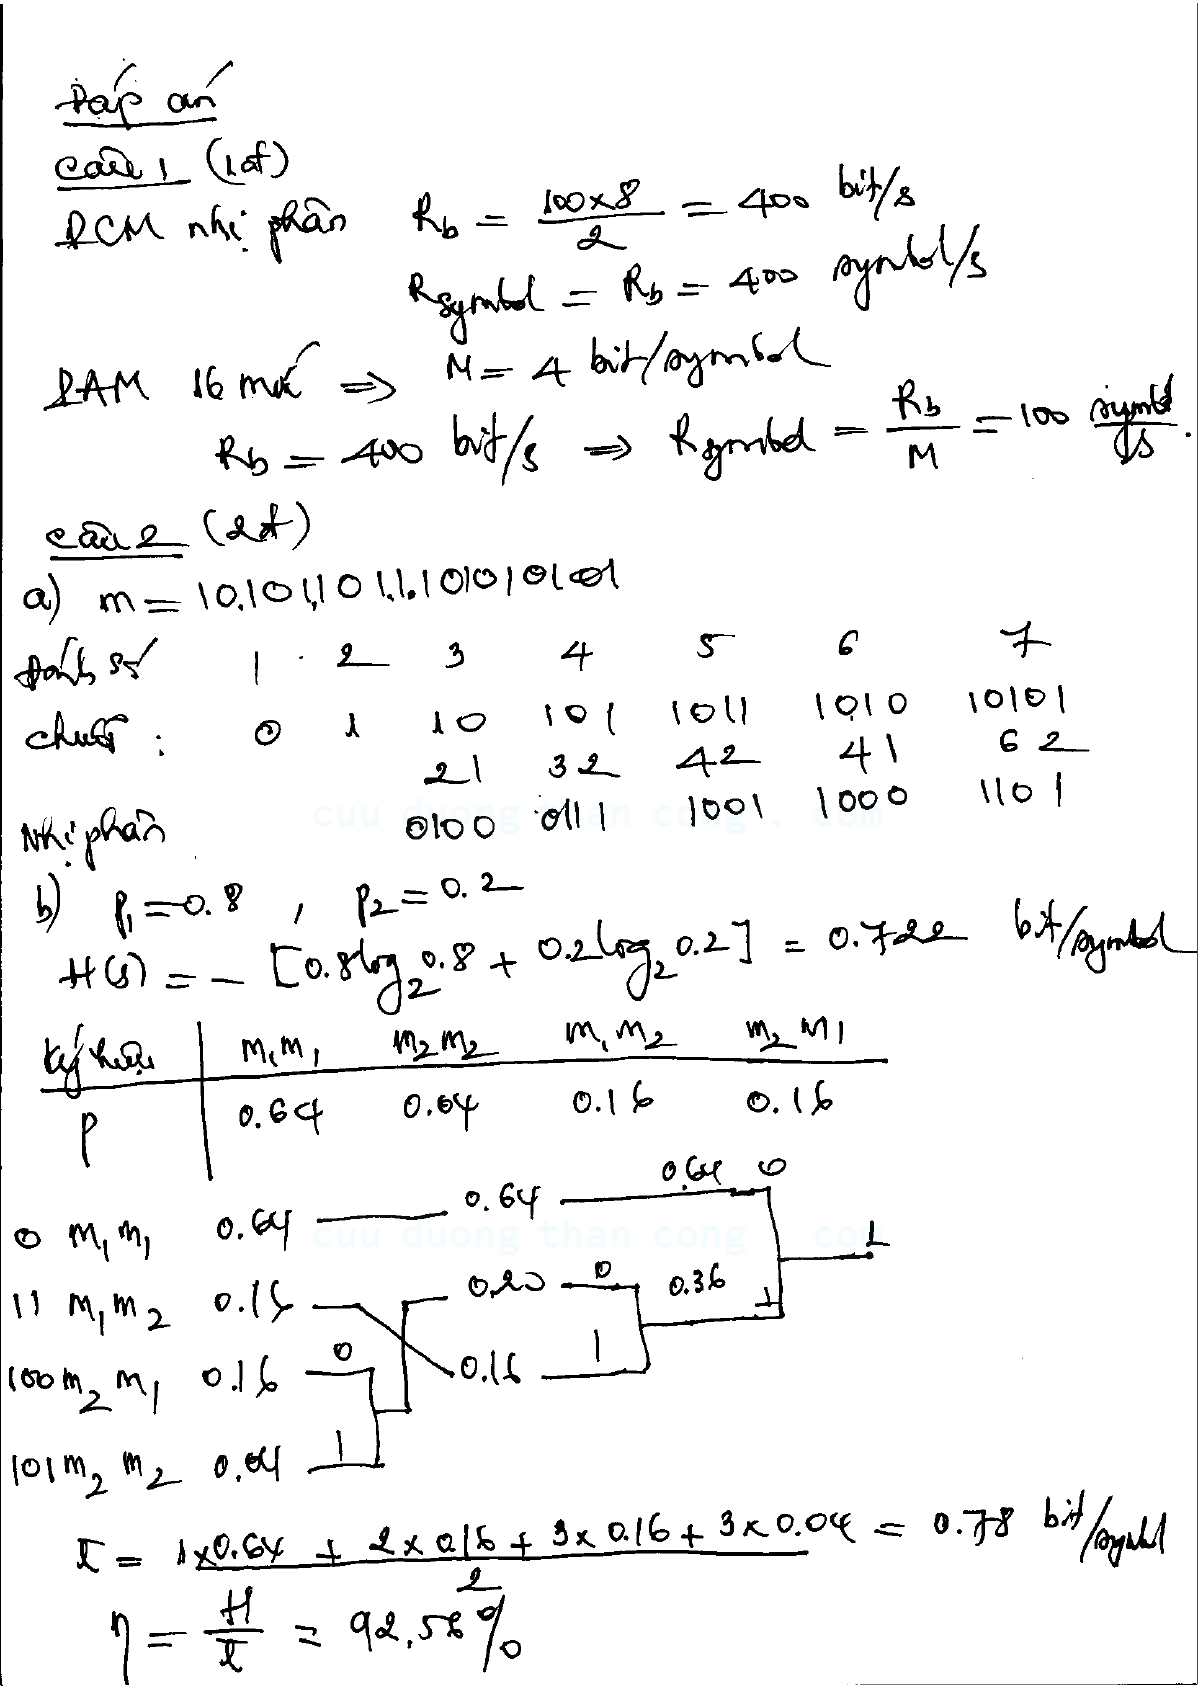 Đáp án
Câu 1 (1đ)
PCM nhị phân Rb = 100x8/2 = 400 bit/s
Rsymbol = Rb = 400 symbol/s
PAM 16 mức => M = 4 bit/symbol
Rb = 400 bit/s => Rsymbol = Rb/M = 100 symbol/s.
Câu 2 (2đ)
a) m = 10,101,1011,1010,10101
Đánh số 1 2 3 4 5 6 7
chuỗi : 0 1 10 101 1011 1010 10101
21 32 42 41 62
Nhị phân 0100 0111 1001 1000 1101
cuu duong than cong . com
b) p1 = 0.8 , p2 = 0.2
H(s) = - [0.8log2 0.8 + 0.2log2 0.2] = 0.722 bit/symbol
Ký hiệu m1m1 m2m2 m1m2 m2m1
P 0.64 0.04 0.16 0.16
0.64 0
0 m1m1 0.64 0.64 1
cuu duong than cong . com
11 m1m2 0.16 0.20 0 0.36 1
100 m2m1 0.16 0 0.16 1
101 m2m2 0.04 1
L = 1x0.64 + 2x0.16 + 3x0.16 + 3x0.04 / 2 = 0.78 bit/symbol
η = H/L = 92,56%